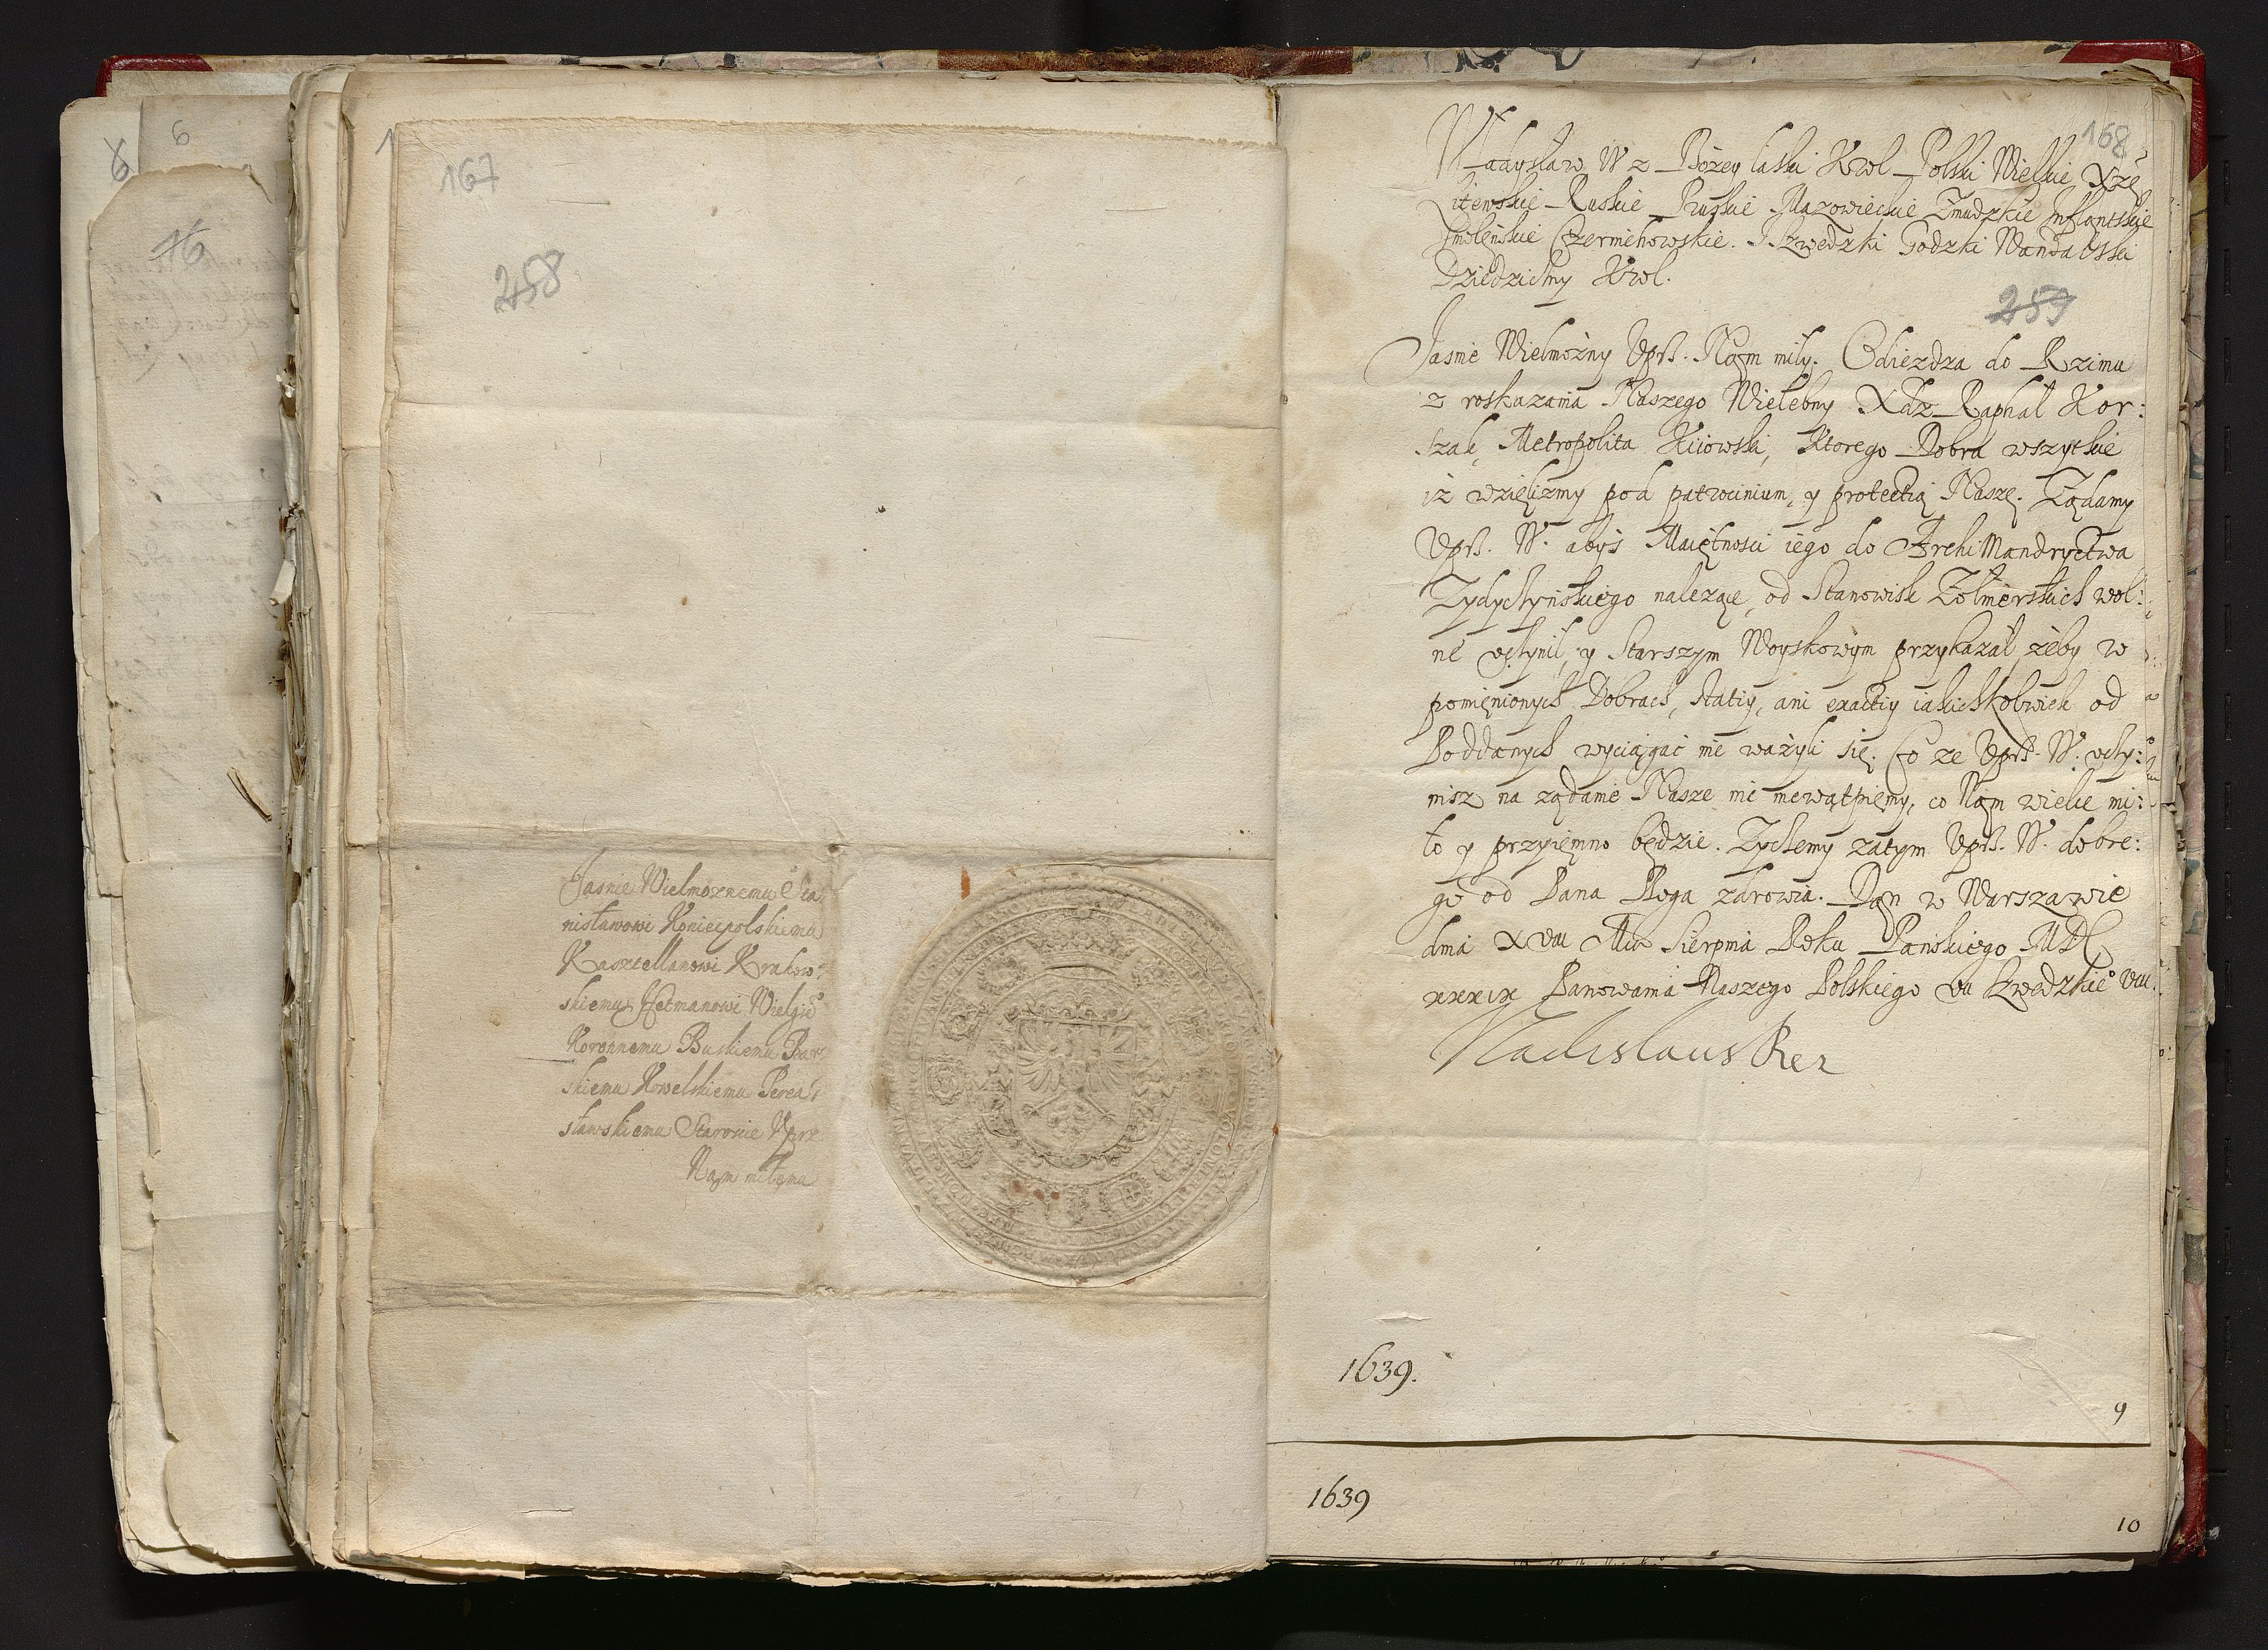 6
6
16
1
167
258
Jasnie Wielmoznemu Sta:
nisławowi Koniecpolskiemu
Kasztellanowi Krakow:
skiemu Hetmanowi Wielgie
Koronnemu Buskiemu Bar:
skiemu Kowelskiemu Pereas
sławskiemu Staroscie Uprz
Nąm miłęmu
168
Władysław IV z Bożey łaski Krol Polski Wielkie Xże
Litewskie Ruskie Pruskie Mazowieckie Żmudzkie Inflantskie
Smoleńskie Czerniehowskie. A Szwedzki Godzki Wandalski
Dziedziczny Krol.
259
Jasnie Wielmożny Vprß. Nąm miły. Odiezdza do Rzimu
z roskazania Naszego Wielebny Xdz Raphał Kor:
szak, Metropolita Kiiowski, Ktorego Dobra wszytkie
iż wzięlizmy pod patrocinium, y protectią Naszę. Ządamy
Vprß. W. abyś Maiętnosci iego do ArchiMandryctwa
Zydyczyńskiego nalezące, od Stanowisk Żołnierskich wol:
ne vczynił, y Starszym Woyskowym przykazał żeby w
pomięnionych Dobrach, statiy, ani exactiy iakichkolwiek od
Poddanych wyciągać nie ważyli się. Co ze Vprß. W. vczy:
nisz na ządanie Nasze nic niewątpięmy, co Nąm wielce mi:
ło y przyięmno będzie. Zyczemy zatym Vprß. W. dobre:
go od Pana Boga zdrowia. Dąn w Warszawie
dnia XVIII Mca Sierpnia Roku Panskiego MDC
XXXIX Panowania Naszego Polskiego VII Szwedzkie VIII.
Vladislaus Rex
1639.
9
1639
10